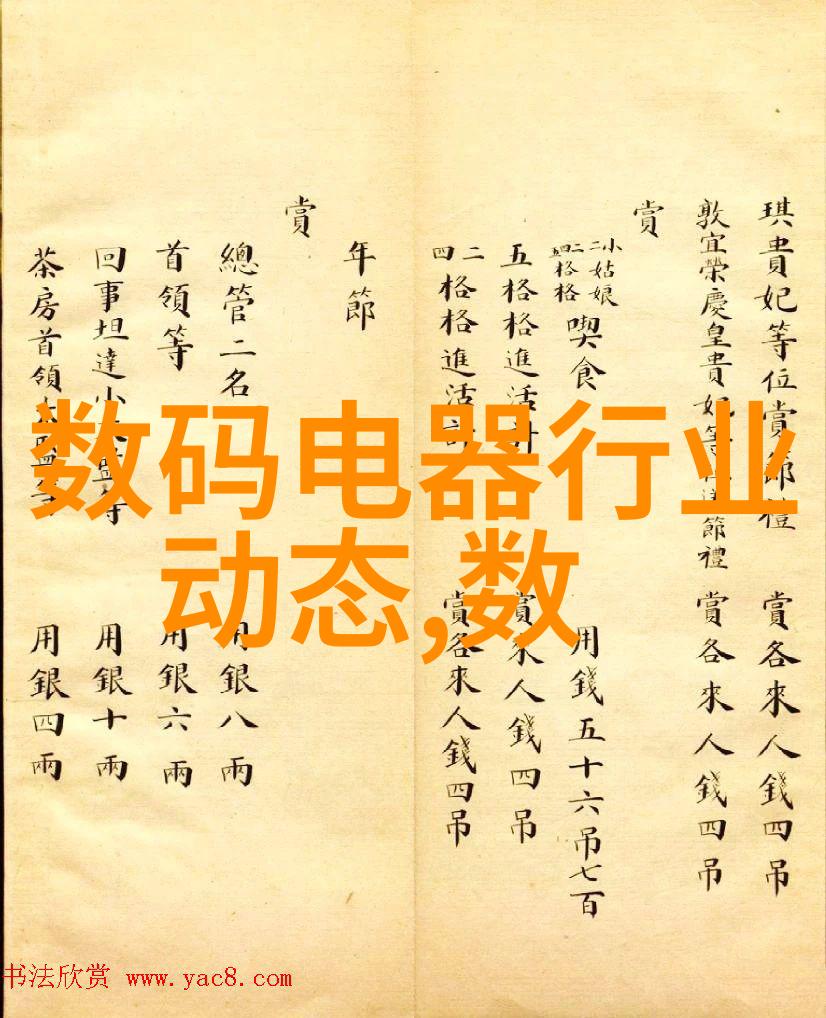 琪貴妃等位賞節禮 賞各來人錢四吊
敦宜榮慶皇貴妃等 節禮 賞各來人錢四吊
賞
小姑娘
二二格格
四格格
喫食 用錢五十六吊七百
五格格進活計 賞來人錢四吊
二四格格進活計 賞各來人錢四吊
年節
賞
總管二名 用銀八兩
首領等 用銀六兩
回事坦達小太監等 用銀十兩
茶房首領太監等 用銀四兩
数码电器行业
动态,数
书法欣赏 www.yac8.com